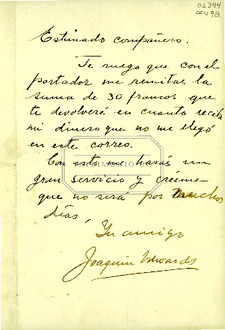 02344
Estimado compañero.
Te ruego que con el
portador me remitas la
suma de 30 francos que
te devolveré en cuanto reciba
mi dinero que no me llegó
en este correo.
Con esto me harás un
gran servicio y créeme
que no será por muchos
días,
Tu amigo
Joaquín Edwards